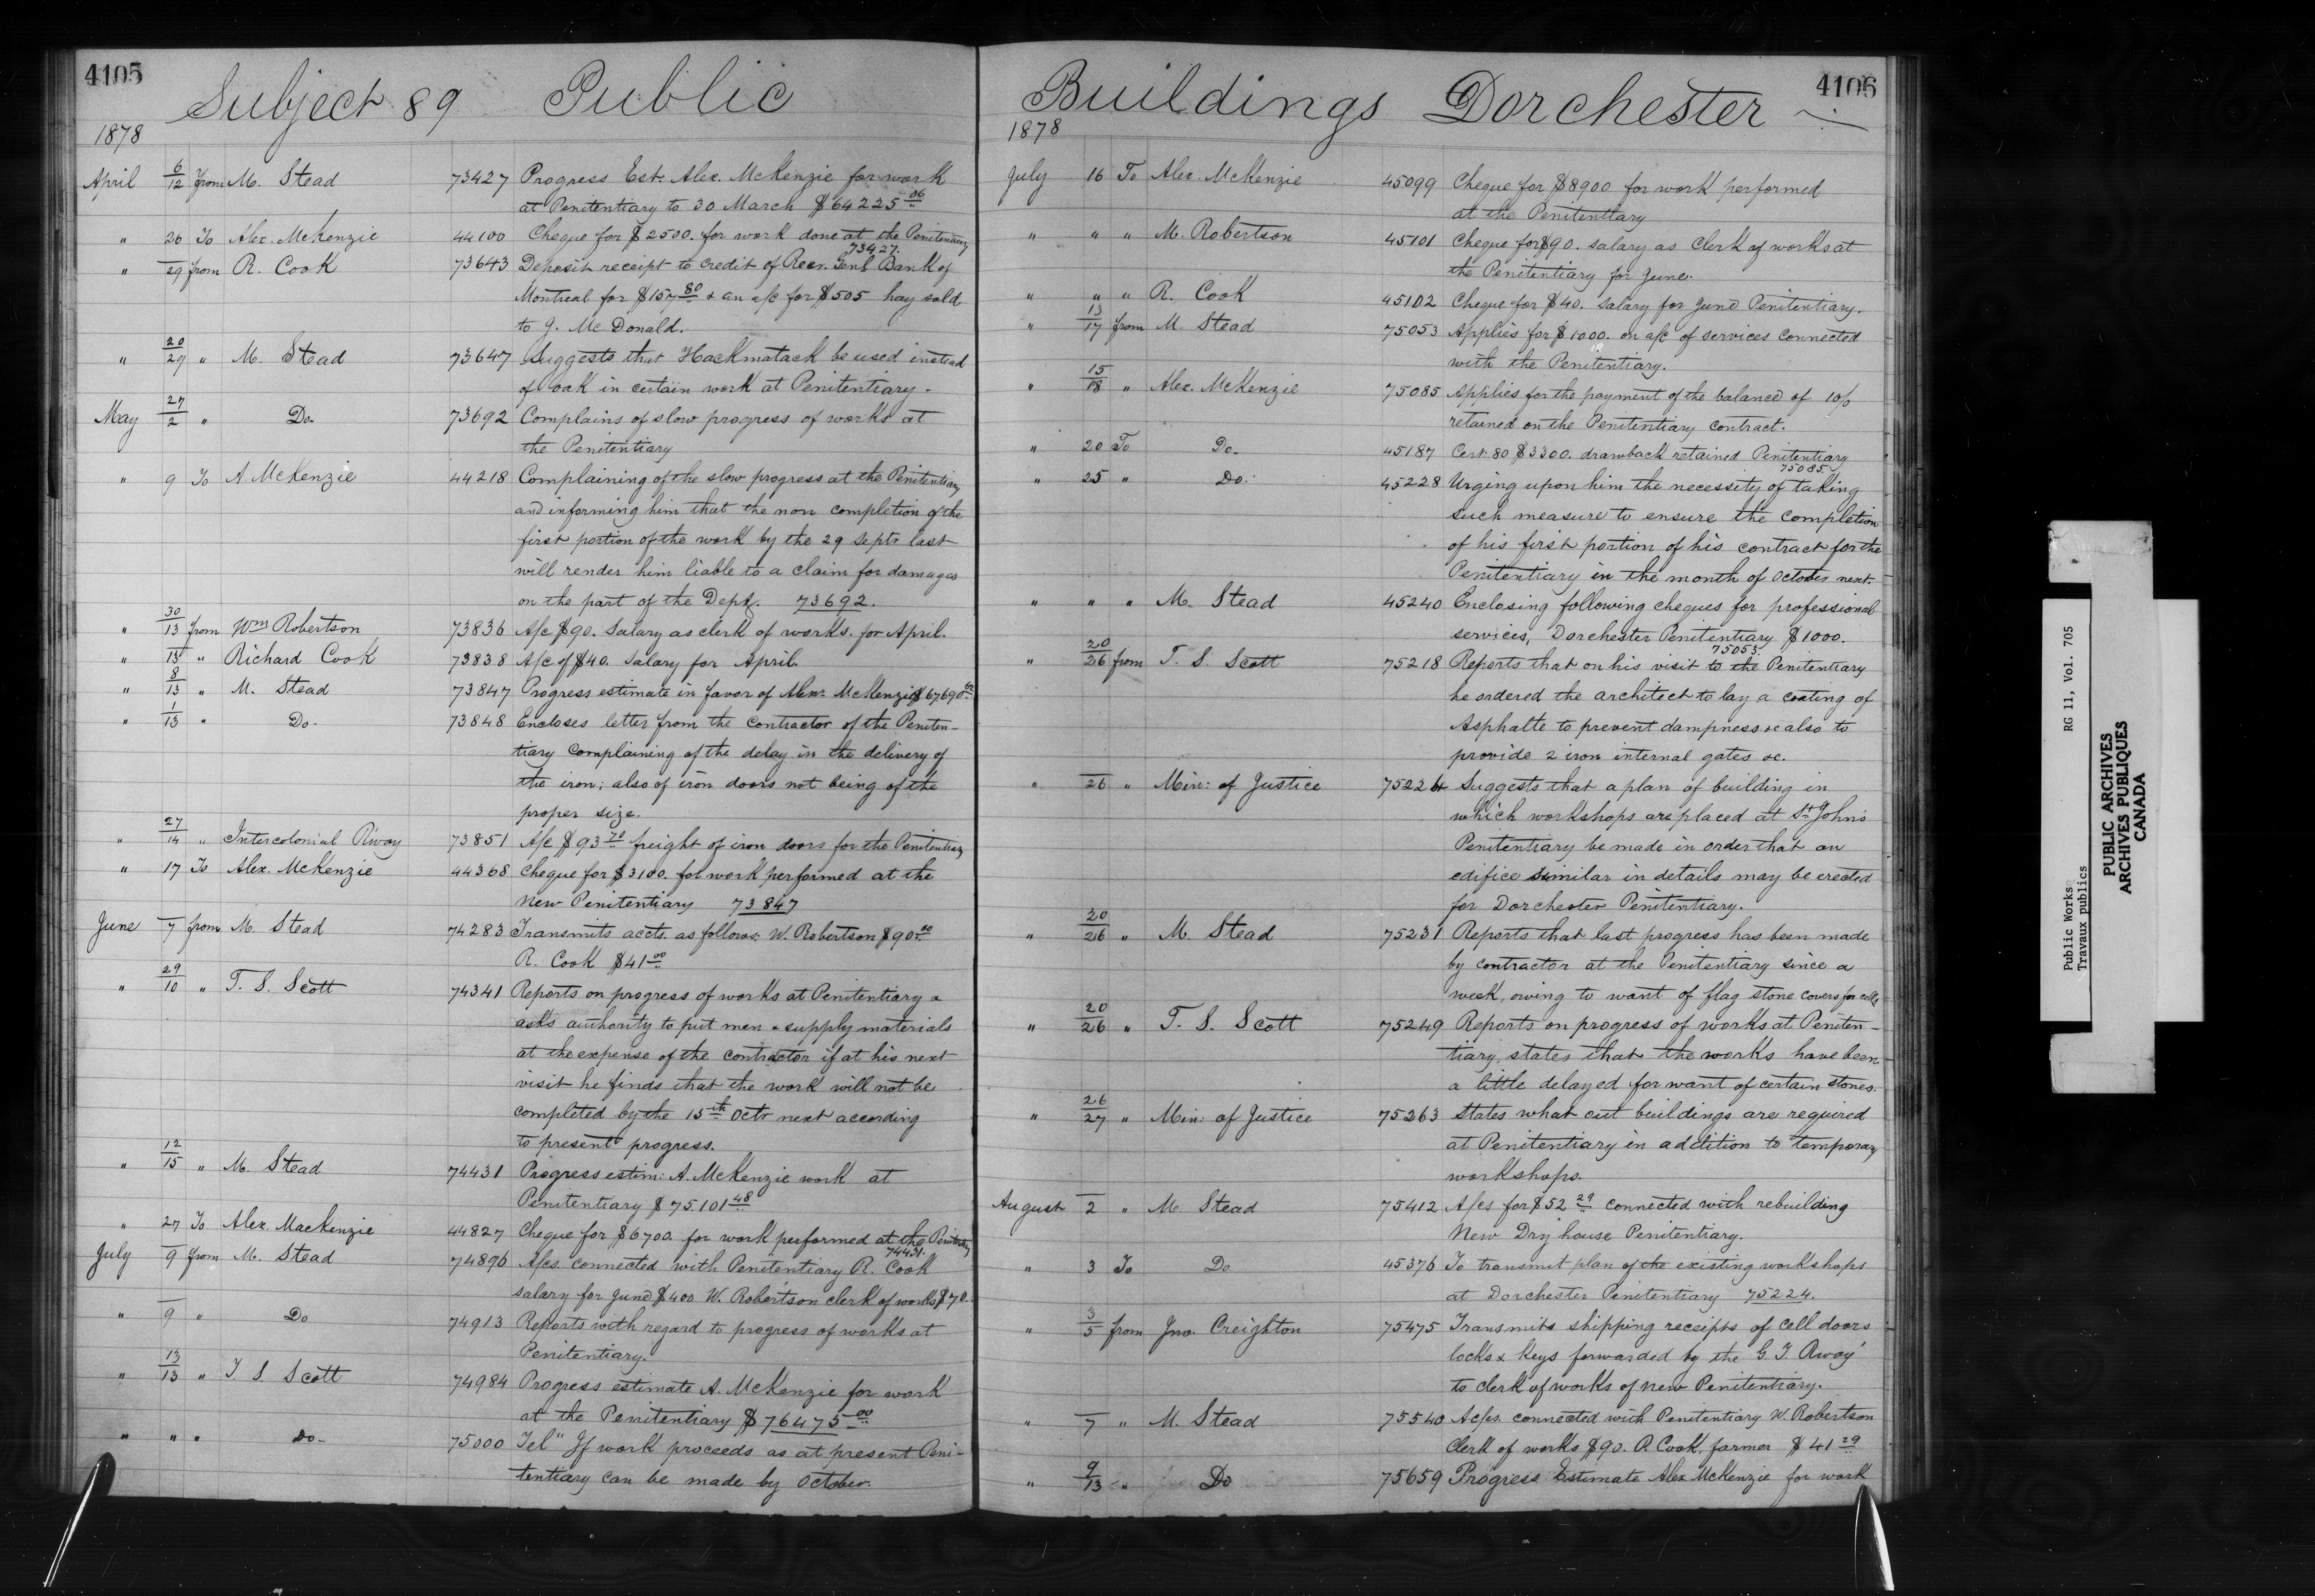 4105
Subject 89 Public
1878
April 6/12 from M. Stead 73427 Progress Est. Alex. McKenzie for work
at Penitentiary to 30 March $64225 06
" 20 To Alex. McKenzie 44100 Cheque for $2500. for work done at the Penitentiary
73427.
" 29 from R. Cook 73643 Deposit receipt to credit of Recr. Genl Bank of
Montreal for $157 80 & an a/c for $505 hay sold
to J. McDonald.
" 20/29 " M. Stead 73647 Suggests that Hackmatack be used instead
of oak in certain work at Penitentiary -
May 27/2 " Do- 73692 Complains of slow progress of works at
the Penitentiary
" 9 To A. McKenzie 44218 Complaining of the slow progress at the Penitentiary
and informing him that the non completion of the
first portion of the work by the 29 Septr last
will render him liable to a claim for damages
on the part of the Dept. 73692.
" 30/13 from Wm Robertson 73836 A/c $90. Salary as clerk of works. for April.
" 13 " Richard Cook 73838 A/c of $40. Salary for April.
" 8/13 " M. Stead 73847 Progress estimate in favor of Alexr McKenzie $67690
" 1/13 " Do- 73848 Encloses letter from the contractor of the Peniten-
tiary complaining of the delay in the delivery of
the iron; also of iron doors not being of the
proper size.
" 27/14 " Intercolonial Rway 73851 A/c $93 70 freight of iron doors for the Penitentiary
" 17 To Alex. McKenzie 44368 Cheque for $3100. for work performed at the
New Penitentiary 73847
June 7 from M. Stead 74283 Transmits accts. as follows: W. Robertson $90 00
R. Cook $41 00
" 29/10 " T. S. Scott 74341 Reports on progress of works at Penitentiary &
asks authority to put men & supply materials
at the expense of the contractor if at his next
visit he finds that the work will not be
completed by the 15th Octr next according
to present progress.
" 12/15 " M. Stead 74431 Progress estim: A. McKenzie work at
Penitentiary $75.101 48
" 27 To Alex. Mackenzie 44827 Cheque for $6700. for work performed at the Penitentiary
74431.
July 9 from M. Stead 74896 A/cs. connected with Penitentiary R. Cook
salary for June $400 W. Robertson clerk of works $70.
" 9 " Do 74913 Reports with regard to progress of works at
Penitentiary.
" 13/13 " T S. Scott 74984 Progress estimate A. McKenzie for work
at the Penitentiary $76475 00
" " " Do- 75000 Tel" If work proceeds as at present Peni-
tentiary can be made by October.
4106
Buildings Dorchester
1878
July 16 To Alex. McKenzie 45099 Cheque for $8900 for work performed
at the Penitentiary
" " " M. Robertson 45101 Cheque for $90. salary as Clerk of works at
the Penitentiary for June.
" " " R. Cook 45102 Cheque for $40. salary for June Penitentiary.
" 13/17 from M. Stead 75053 Applies for $1000. on a/c of services connected
with the Penitentiary.
" 15/18 " Alex. McKenzie 75085 Applies for the payment of the balance of 10%
retained on the Penitentiary contract.
" 20 To Do- 45187 Cert. 80 $3300. drawback retained Penitentiary
75085.
" 25 " Do. 45228 Urging upon him the necessity of taking
such measure to ensure the completion
of his first portion of his contract for the
Penitentiary in the month of October next.
" " " M. Stead 45240 Enclosing following cheques for professional
services, Dorchester Penitentiary $1000.
75053.
" 20/26 from T. S. Scott 75218 Reports that on his visit to the Penitentiary
he ordered the architect to lay a coating of
Asphalte to prevent dampness & also to
provide 2 iron internal gates &c.
" 26 " Min: of Justice 75224 Suggests that a plan of building in
which workshops are placed at St John's
Penitentiary be made in order that an
edifice similar in details may be erected
for Dorchester Penitentiary.
" 20/26 " M. Stead 75231 Reports that last progress has been made
by contractor at the Penitentiary since a
week, owing to want of flag stone covers for cells
" 20/26 " T. S. Scott 75249 Reports on progress of works at Peniten-
tiary, states that the works have been
a little delayed for want of certain stones.
" 26/27 " Min: of Justice 75263 States what out buildings are required
at Penitentiary in addition to temporary
workshops.
August 2 " M. Stead 75412 A/cs for $52 29 connected with rebuilding
New Dry house Penitentiary.
" 3 To Do 45376 To transmit plan of the existing workshops
at Dorchester Penitentiary 75224.
" 3/5 from Jno. Creighton 75475 Transmits shipping receipts of Cell doors
locks & keys forwarded by the G. T. Rway
to clerk of works of new Penitentiary.
" 7 " M. Stead 75540 Ac/s. connected with Penitentiary W. Robertson
Clerk of works $90. R. Cook, farmer $41 29
" 9/13 " Do 75659 Progress Estimate Alex McKenzie for work
Public Works RG 11, Vol. 705
Travaux publics
PUBLIC ARCHIVES
ARCHIVES PUBLIQUES
CANADA